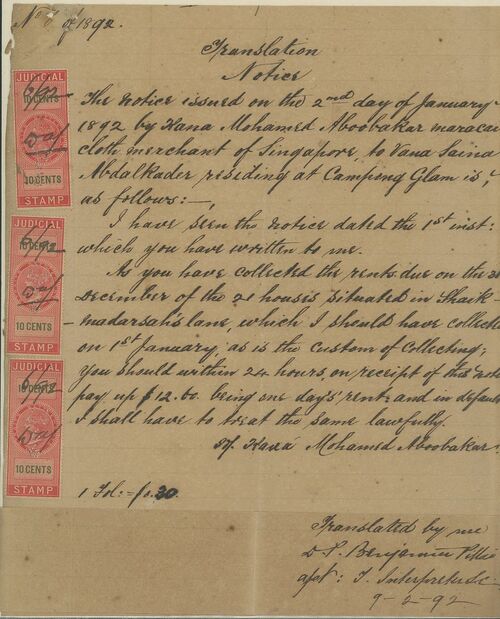 No 7 of 1892.
Translation
Notice
The Notice issued on the 2nd day of January
1892 by Kana Mohamed Aboobakar maracai
cloth merchant of Singapore to Vana Saina
Abdalkader residing at Campong Glam is,
as follows:—
I have seen the notice dated the 1st inst:
which you have written to me.
As you have collected the rents due on the 31
December of the 21 houses situated in Shaik
madarsah's lane, which I should have collected
on 1st January, as is the Custom of Collecting;
You should within 24 hours, on receipt of this notice
pay up $12.60 being one days' rent and in default
I shall have to treat the same lawfully.
Kana Mohamed Aboobakar.
1 Fol:
Translated by me
Benjamin
Interpreter
9-2-92
JUDICIAL
10 CENTS
10 CENTS
STAMP
JUDICIAL
10 CENTS
STAMP
JUDICIAL
10 CENTS
10 CENTS
STAMP